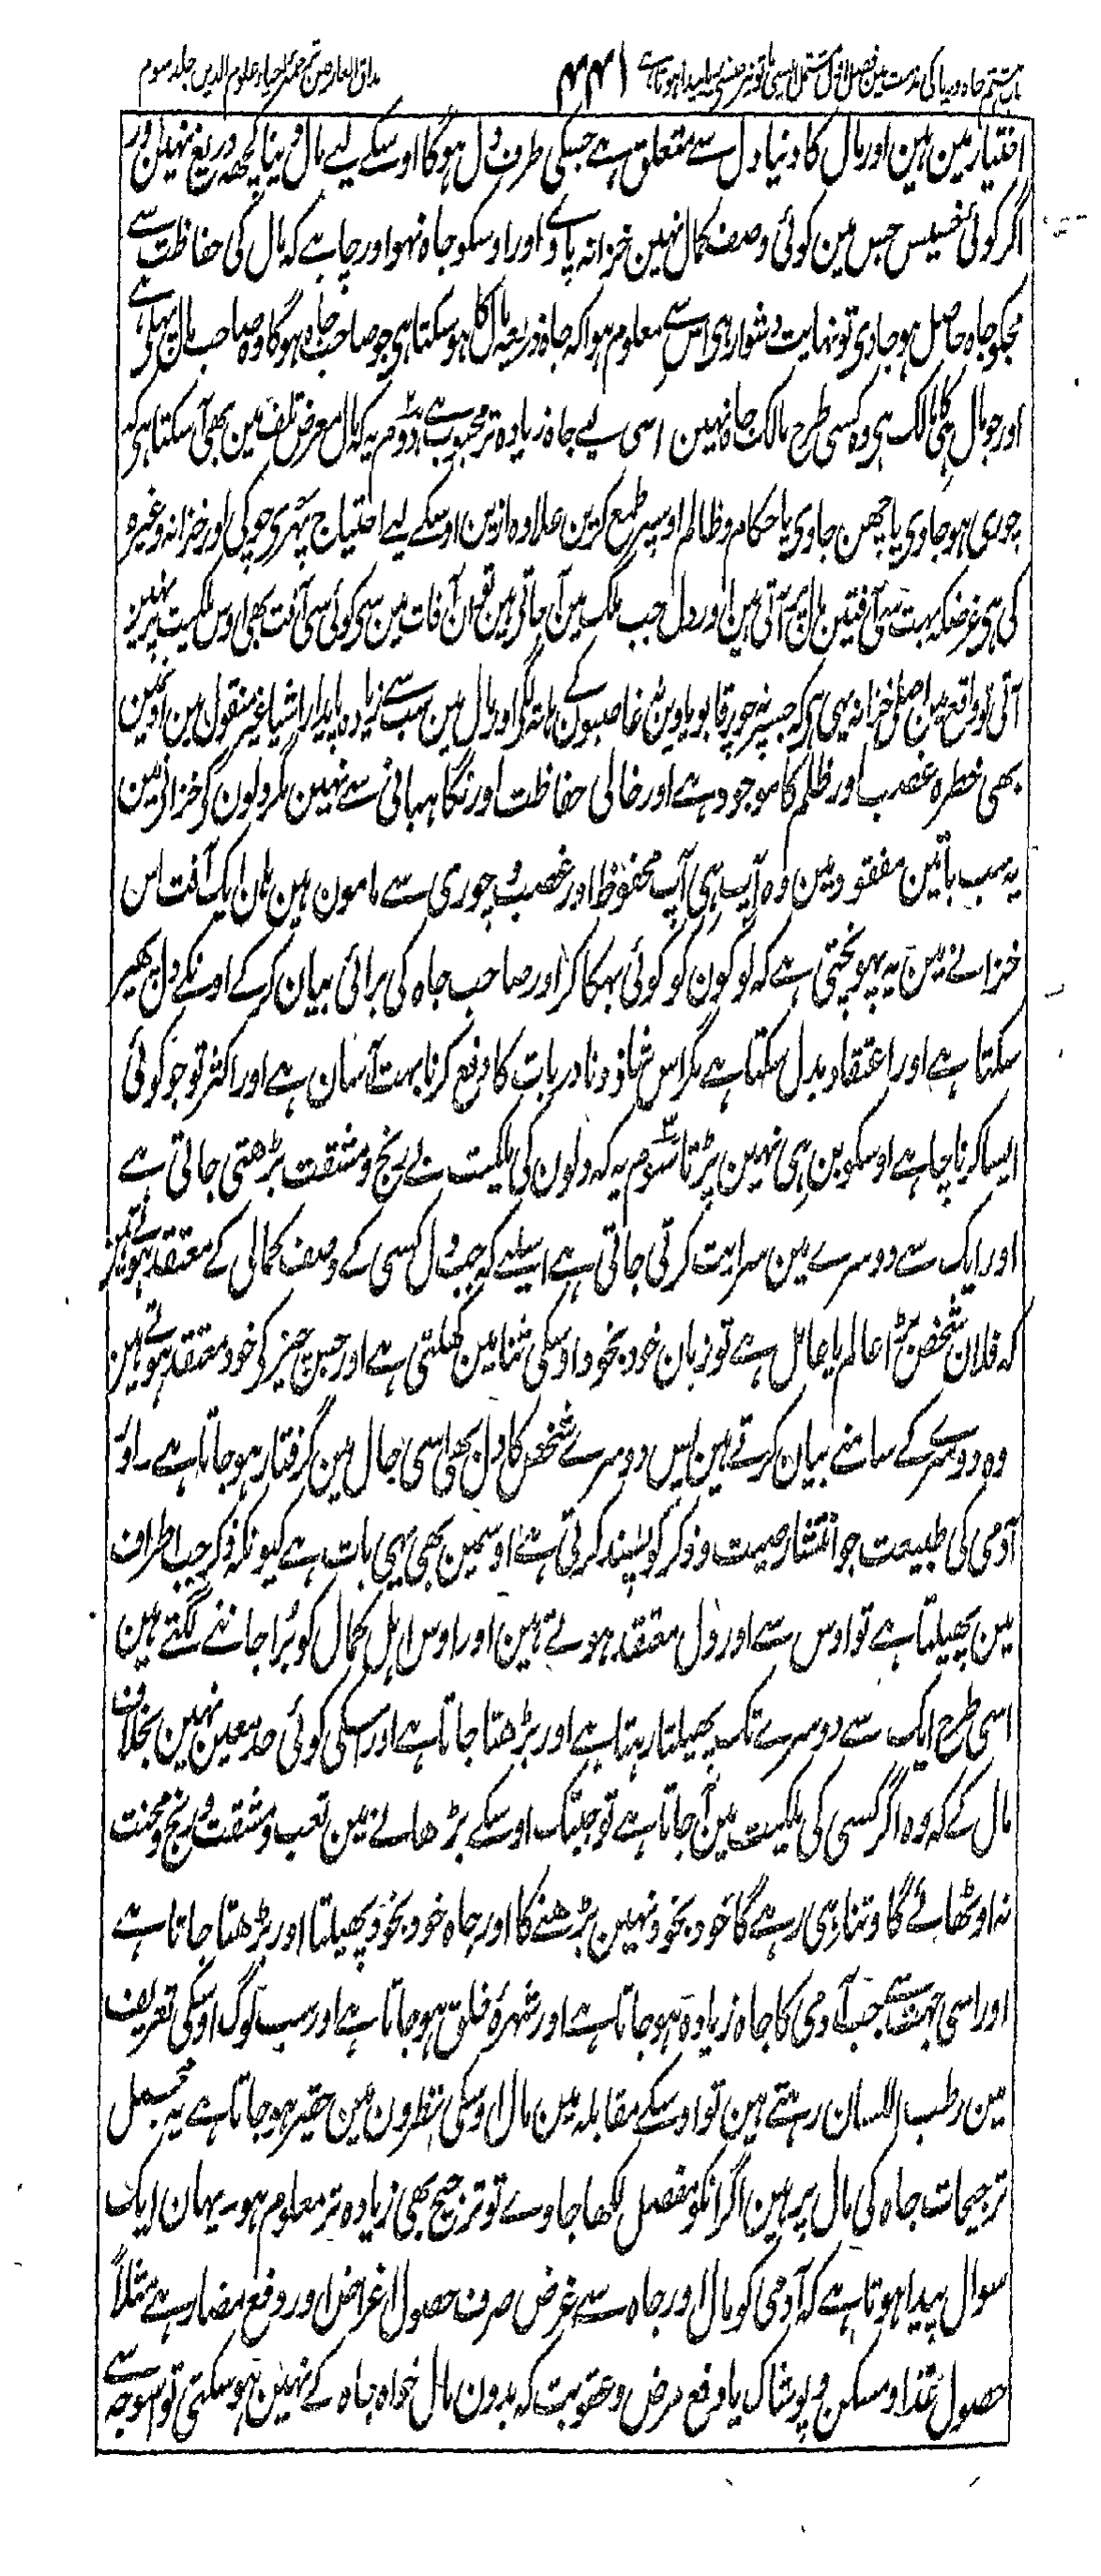 باب ہشتم جاہ و ریا کی مذمت مین فصل اول ۴۴۱ مذاق العارفین ترجمۂ احیاء علوم الدین جلد سوم
اختیار مین ہین اور مال کا دنیا دل سے متعلق ہے جسکی طرف دل ہوگا اوسکے لیے مال دینا کچھہ دریغ نہین اور
اگر کوئی خسیس جس مین کوئی وصف کمال نہین خزانہ پاوے اور اوسکو جاہ نہو اور چاہے کہ مال کی حفاظت سے
مجکو جاہ حاصل ہو جاوی تو نہایت دشوار ہی اس سے معلوم ہوا کہ جاہ ذریعہ مال کا ہو سکتا ہی جو صاحب جاہ ہوگا وہ صاحب مال
اور جو مال ہی کا مالک ہی وہ کسی طرح مالک جاہ نہین اسی لیے جاہ زیادہ تر محبوب ہے دوم یہ کہ مال معرض تلف مین بھی آ سکتا ہی کہ
چوری ہو جاوی یا چھن جاوی یا حکام و ظالم اوسپر طمع کرین علاوہ ازین اوسکے لیے احتیاج پہری چوکی اور خزانہ وغیرہ
کی ہی غرضکہ بہت سی آفتین مال پر آتی ہین اور دل جب ملک مین آ جاتی ہین تو ان آفات مین سی کوئی سی آفت بھی اوس ملکیت پر نہین
آتی تو واقع مین اصلی خزانہ یہی ہی کہ جسپر نہ چور قابو پاوین نہ غاصبون کے ہاتہ لگی اور مال مین سب سے زیادہ پایدار اشیا غیر منقول ہین اونمین
بھی خطرہ غصب اور ظلم کا موجود ہے اور خالی حفاظت اور نگاہبانی سے نہین مگر دلون کی خزانے مین
یہ سب باتین مفقود ہین وہ آپ ہی آپ محفوظ اور غصب و چوری سے مامون ہین ہان ایک آفت اس
خزانے مین یہ پہونچتی ہے کہ لوگون کو کوئی بہکا کر اور صاحب جاہ کی برائی بیان کرکے اونکے دل پھیر
سکتا ہے اور اعتقاد بدل سکتا ہے مگر اس شاذ و نادر بات کا دفع کرنا بہت آسان ہے اور اکثر تو جو کوئی
ایسا کرنا چاہے اوسکو بن ہی نہین پڑتا سوم یہ کہ دلون کی ملکیت بے رنج و مشقت بڑھتی جاتی ہے
اور ایک سے دوسرے مین سرایت کرتی جاتی ہے اسلیے کہ جب دل کسی کے وصف کمالی کے معتقد ہوتے ہین
کہ فلان شخص بڑا عالم یا عامل ہے تو زبان خود بخود اوسکی ثنا مین کھلتی ہے اور جس چیز کی خود معتقد ہوتے ہین
وہ دوسرے کے سامنے بیان کرتے ہین پس دوسرے شخص کا دل بھی اسی جال مین گرفتار ہو جاتا ہے ۔ اور
آدمی کی طبیعت جو انتشار صیت و ذکر کو پسند کرتی ہے اوسمین بھی یہی بات ہے کیونکہ ذکر جب اطراف
مین پھیلتا ہے تو اوس سے اور دل معتقد ہوتے ہین اور اوس اہل کمال کو بڑا جاننے لگتے ہین
اسی طرح ایک سے دوسرے تک پھیلتا رہتا ہے اور بڑھتا جاتا ہے اور اسکی کوئی حد معین نہین بخلاف
مال کے کہ وہ اگر کسی کی ملکیت مین آ جاتا ہے تو جبتک اوسکے بڑھانے مین تعب و مشقت و رنج و محنت
نہ اوٹھائے گا وتنا ہی رہے گا خود بخود نہین بڑھنے کا اور جاہ خود بخود پھیلتا اور بڑھتا جاتا ہے
اور اسی جہت سے جب آدمی کا جاہ زیادہ ہو جاتا ہے اور شہرۂ خلق ہو جاتا ہے اور سب لوگ اوسکی تعریف
مین رطب اللسان رہتے ہین تو اوسکے مقابلہ مین مال اوسکی نظرون مین حقیر ہو جاتا ہے یہ مجمل
ترجیحات جاہ کی مال پر ہین اگر انکو مفصل لکھا جاوے تو ترجیح بھی زیادہ تر معلوم ہو ۔ یہان ایک
سوال پیدا ہوتا ہے کہ آدمی کو مال اور جاہ سے غرض صرف حصول اغراض اور دفع مضار ہے مثلاً
حصول غذا و مسکن و پوشاک یا دفع مرض و عقوبت کہ بدون مال خواہ جاہ کے نہین ہو سکتی تو اسوجہ سے